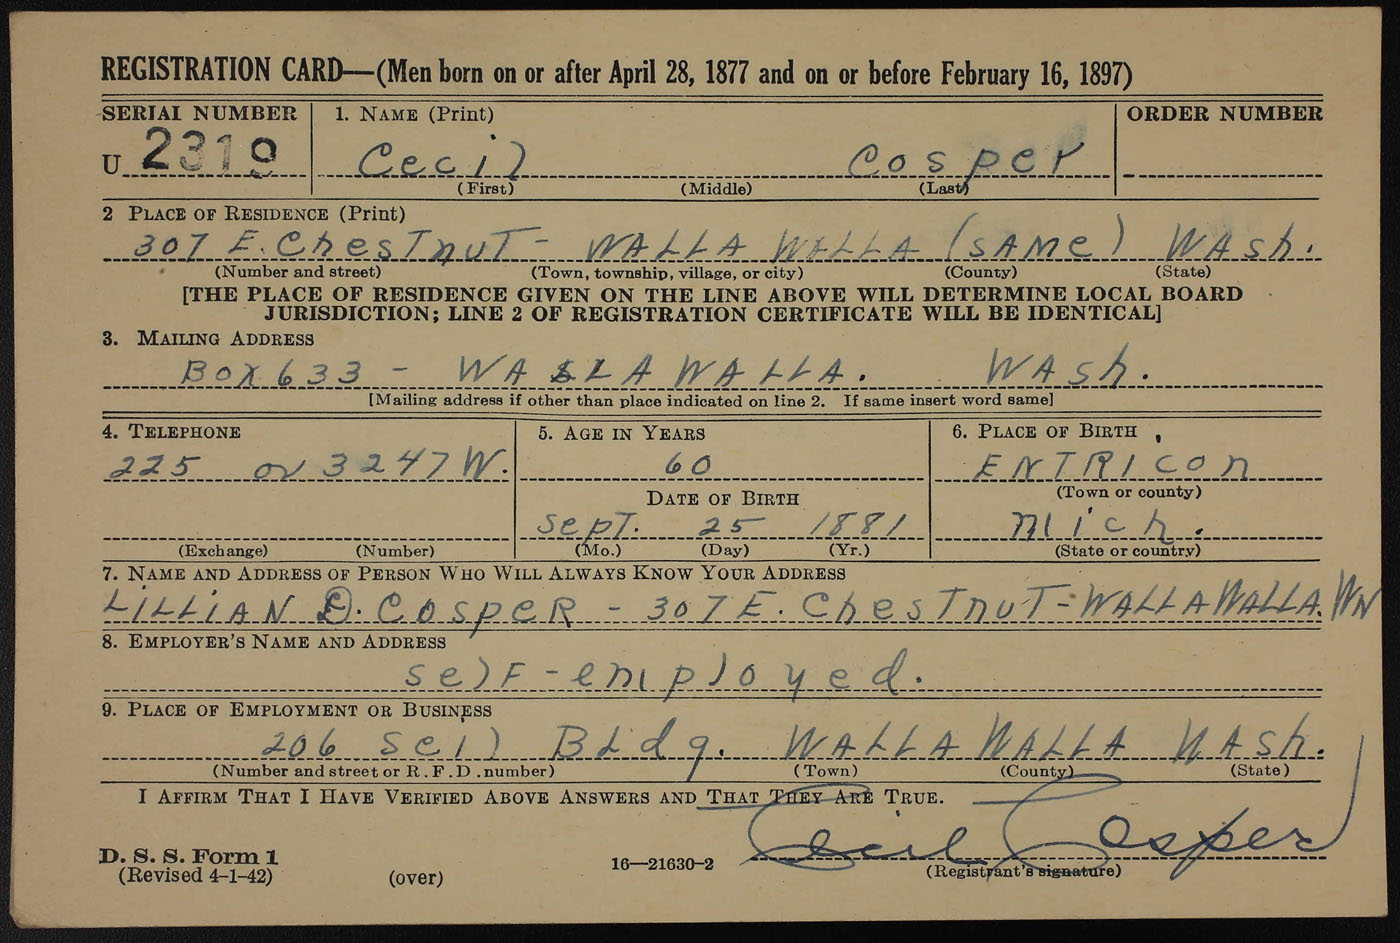 REGISTRATION CARD—(Men born on or after April 28, 1877 and on or before February 16, 1897)
SERIAL NUMBER 1. NAME (Print) ORDER NUMBER
U 2319 Cecil Cosper
(First) (Middle) (Last)
2 PLACE OF RESIDENCE (Print)
307 E. Chestnut - WALLA WALLA (SAME) WAsh.
(Number and street) (Town, township, village, or city) (County) (State)
[THE PLACE OF RESIDENCE GIVEN ON THE LINE ABOVE WILL DETERMINE LOCAL BOARD
JURISDICTION; LINE 2 OF REGISTRATION CERTIFICATE WILL BE IDENTICAL]
3. MAILING ADDRESS
Box 633 - WALLA WALLA. WAsh.
[Mailing address if other than place indicated on line 2. If same insert word same]
4. TELEPHONE 5. AGE IN YEARS 6. PLACE OF BIRTH
225 or 3247 W. 60 ENTRICON
DATE OF BIRTH (Town or county)
Sept. 25 1881 Mich.
(Exchange) (Number) (Mo.) (Day) (Yr.) (State or country)
7. NAME AND ADDRESS OF PERSON WHO WILL ALWAYS KNOW YOUR ADDRESS
LILLIAN D. COSPER - 307 E. Chestnut - WALLA WALLA. WN
8. EMPLOYER'S NAME AND ADDRESS
self-employed.
9. PLACE OF EMPLOYMENT OR BUSINESS
206 Seil Bldg. WALLA WALLA WAsh.
(Number and street or R.F.D. number) (Town) (County) (State)
I AFFIRM THAT I HAVE VERIFIED ABOVE ANSWERS AND THAT THEY ARE TRUE.
Cecil Cosper
D. S. S. Form 1
(Revised 4-1-42) (over) 16—21630-2 (Registrant's signature)